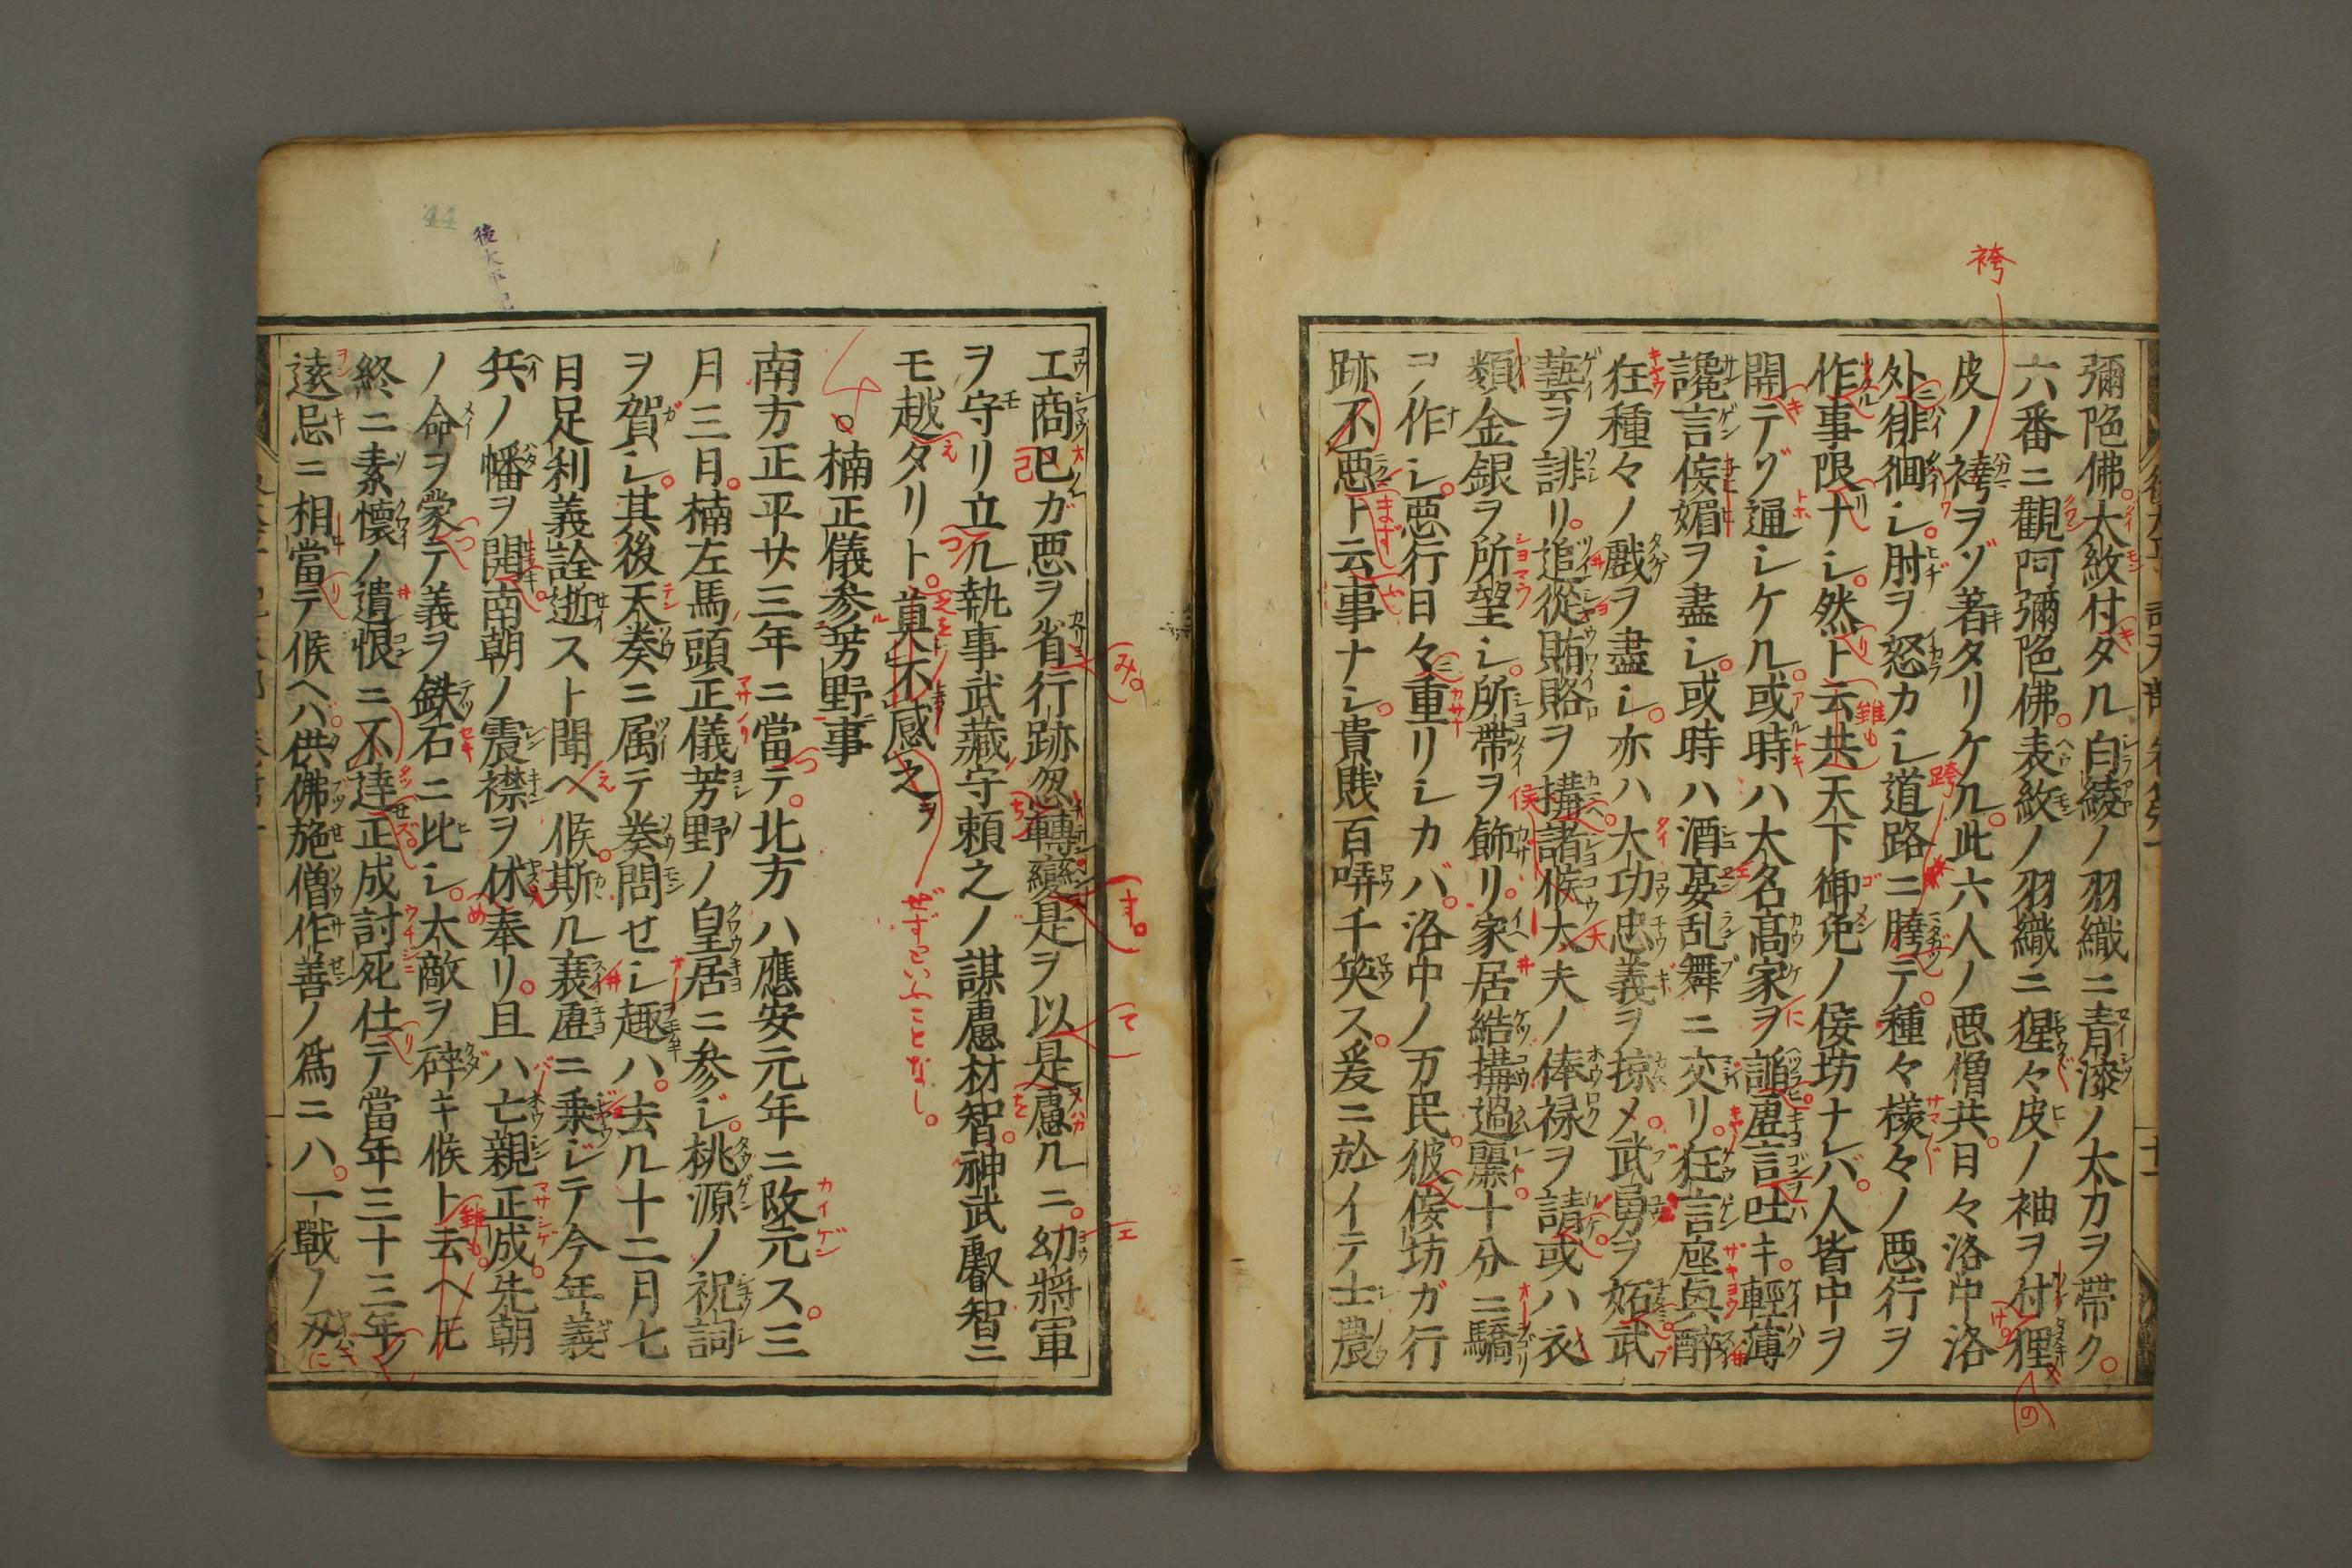 彌陀佛大紋付タル白綾ノ羽織ニ青漆ノ太刀ヲ帶ク
六番ニ觀阿彌陀佛表紋ノ羽織ニ猩々皮ノ袖ヲ付狸
皮ノ袴ヲゾ著タリケル此六人ノ悪僧共日々洛中洛
外徘徊シ肘ヲ怒カシ道路ニ胯テ種々樣々ノ悪行ヲ
作事限ナシ然ト云共天下御免ノ侫坊ナレバ人皆中ヲ
開テゾ通シケル或時ハ大名高家ヲ謡虚言吐キ輕薄
讒言侫媚ヲ盡シ或時ハ酒宴乱舞ニ交リ狂言座與醉
狂種々ノ戲ヲ盡シ亦ハ大功忠義ヲ掠メ武勇ヲ妬武
藝ヲ誹リ追從賄賂ヲ搆諸候大夫ノ俸禄ヲ請或ハ衣
類金銀ヲ所望シ所帶ヲ飾リ家居結搆過麗十分ニ驕
コノ作シ悪行日々重リシカバ洛中ノ万民彼侫坊ガ行
跡不悪ト云事ナシ貴賎百哢千笑ス爰ニ於イテ士農
工商巳ガ悪ヲ省行跡忽轉變是ヲ以是慮ルニ幼將軍
ヲ守リ立ル執事武藏守頼之ノ謀慮材智神武叡智ニ
モ越タリト莫不感之ヲ
楠正儀参芳野事
南方正平廿三年ニ當テ北方ハ應安元年ニ改元ス三
月三日楠左馬頭正儀芳野ノ皇居ニ参ジ桃源ノ祝詞
ヲ賀シ其後天奏ニ属テ奏問セシ趣ハ去ル十二月七
日足利義詮逝スト聞ヘ候斯ル衰虚ニ乗ジテ今年義
兵ノ幡ヲ開南朝ノ震襟ヲ休奉リ且ハ亡親正成先朝
ノ命ヲ蒙テ義ヲ鉄石ニ比シ太敵ヲ碎キ候ト云ヘ𪜈
終ニ素懷ノ遺恨ニ不達正成討死仕テ當年三十三年ノ
遠忌ニ相當テ候ヘハ供佛施僧作善ノ爲ニハ一戰ノ刃
袴
ぜずといふことなし。
後太平記
44